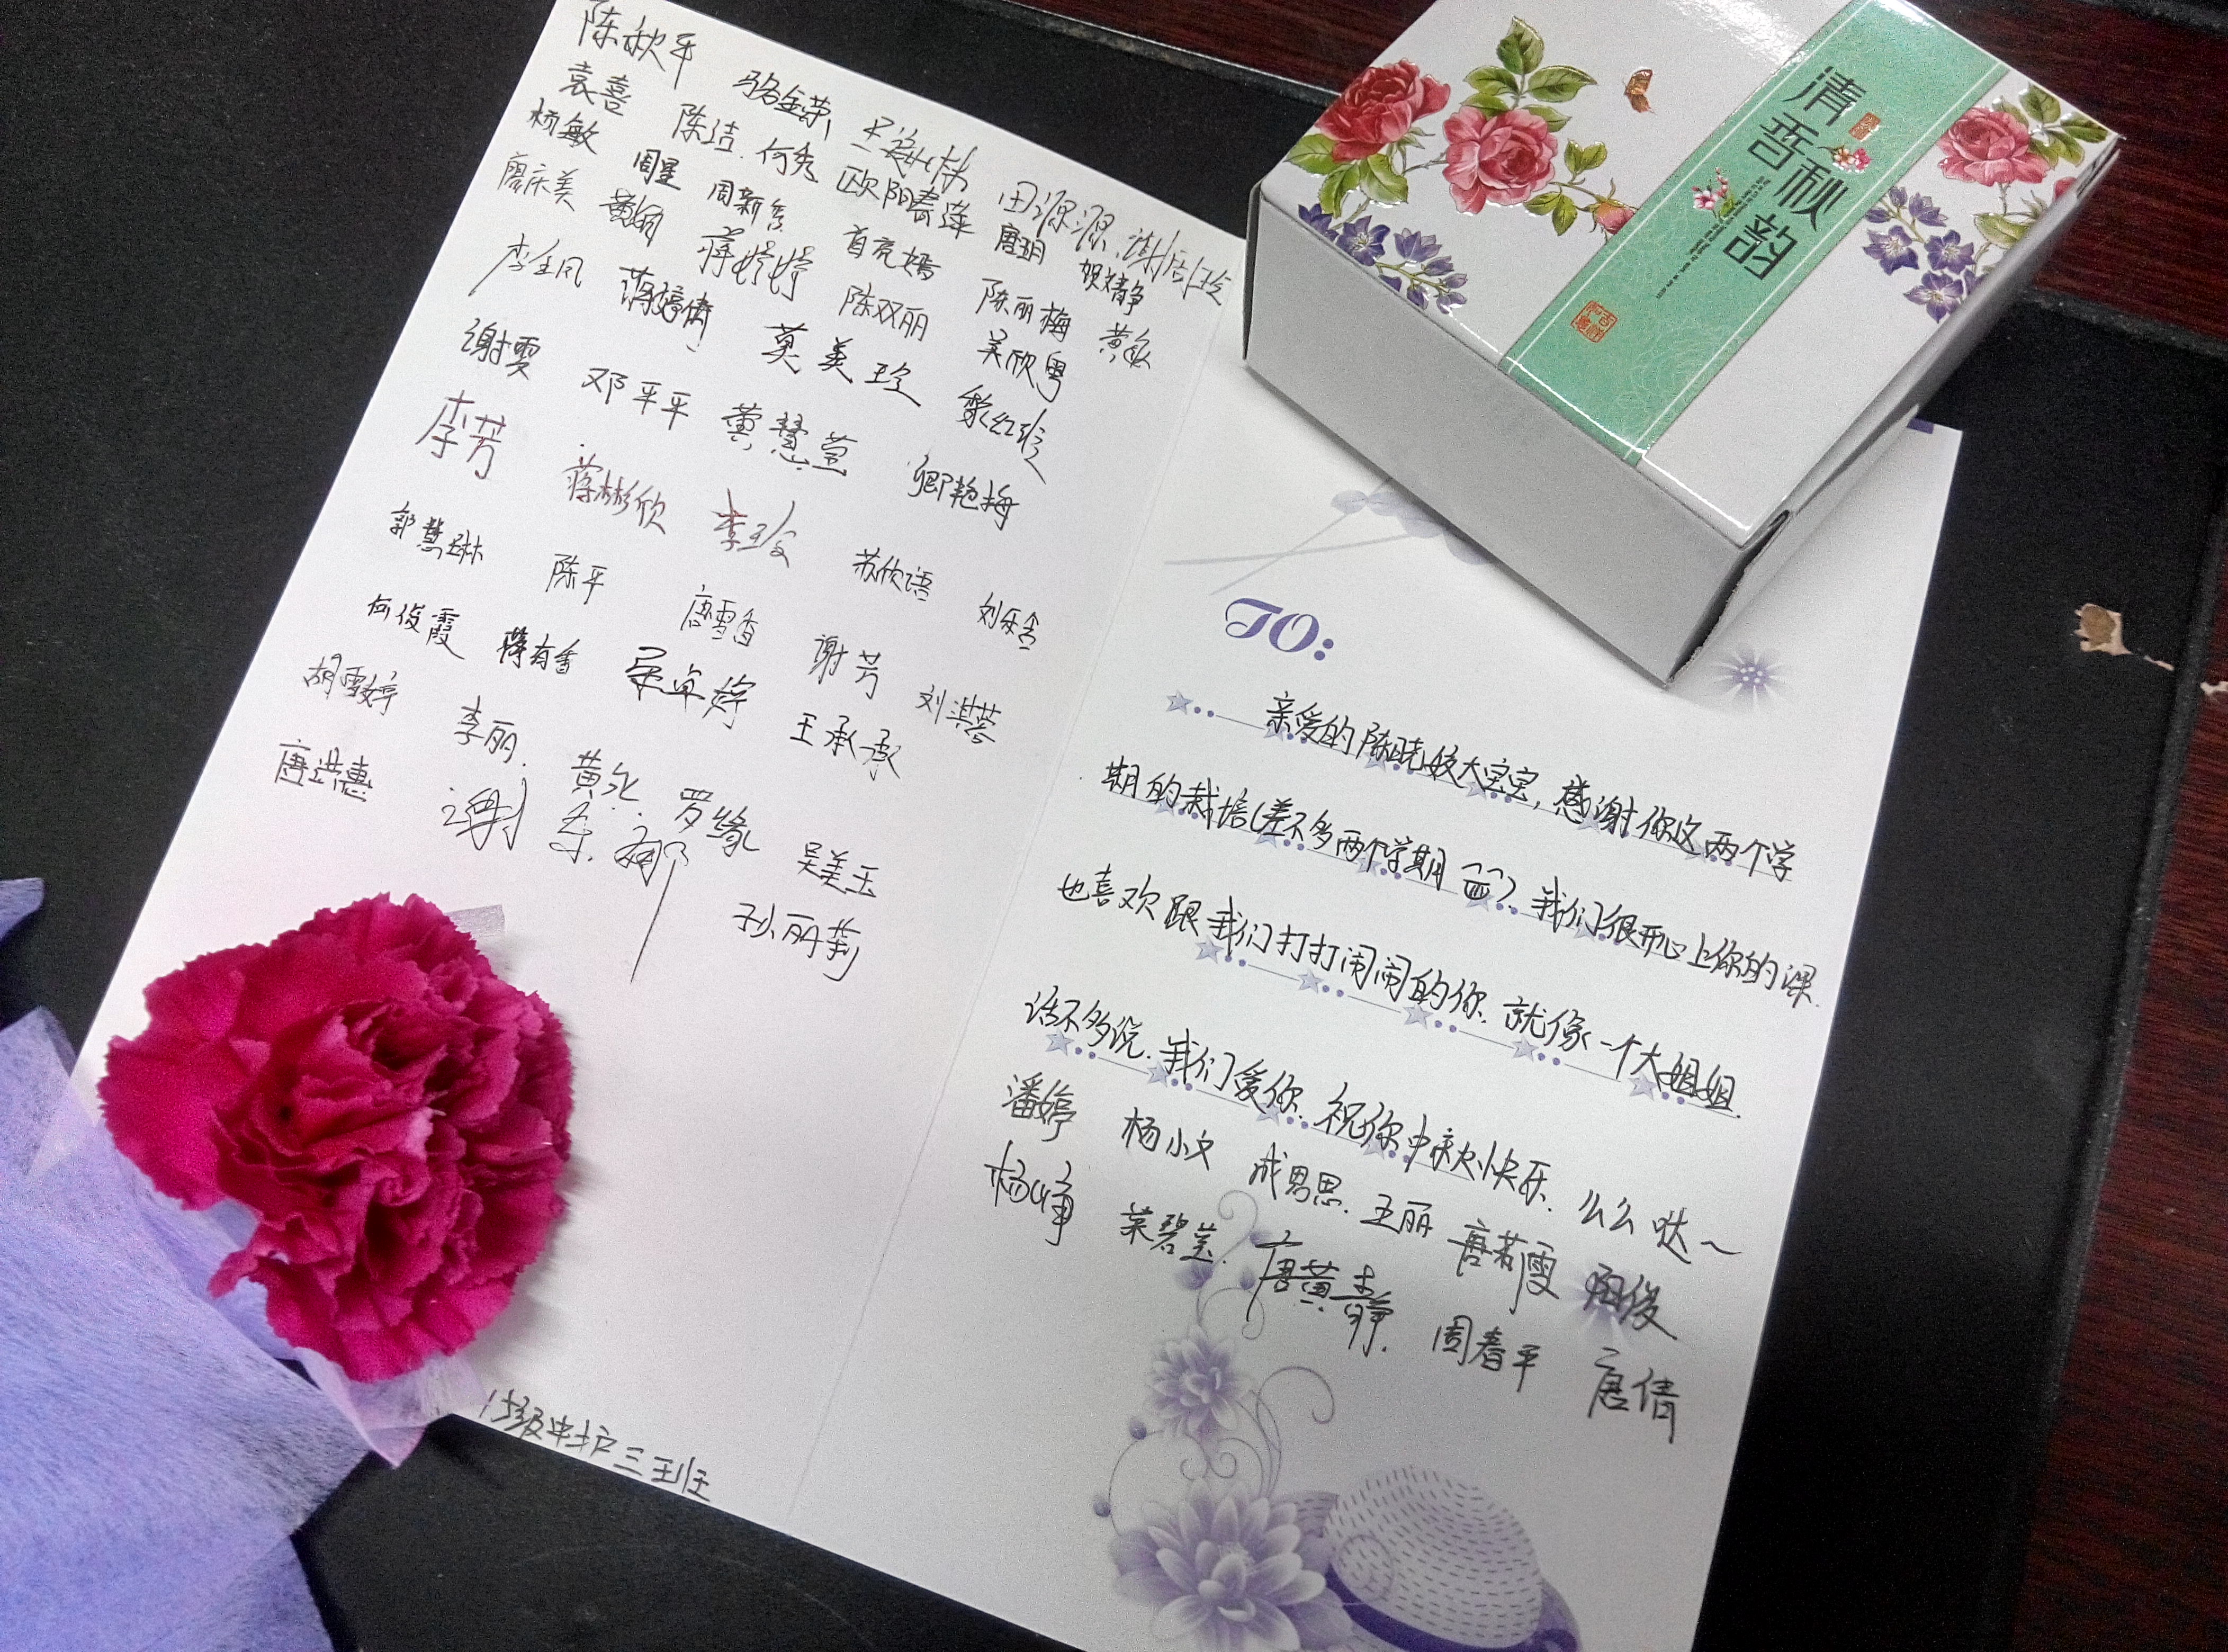 陈秋平
袁喜 骆金荣 田源源
杨敏 陈洁 何秀 欧阳春莲 唐玥 贺靖静
廖庆美 周星 周新 首亮嫣 陈丽梅 黄
李金凤 蒋婷婷 陈双丽 吴欣粤
谢雯 蒋婷倩 莫美玲 红玲
李芳 邓平平 黄慧萱 卿艳梅
郭慧琳 蒋彬欣 李玲 苏欣语 刘
何俊霞 陈平 唐雪香 谢芳 刘淇蓉
胡雪婷 蒋有香 王承承
唐洪惠 李丽 黄允 罗缘 吴美玉
谢 孙丽莉
15级中护三班
清香秋韵
TO:
亲爱的陈晓姣大宝宝,感谢你这两个学
期的栽培(差不多两个学期). 我们很开心上你的课.
也喜欢跟我们打打闹闹的你. 就像一个大姐姐.
话不多说. 我们爱你. 祝你中秋快乐. 么么哒~
潘婷 杨小文 成男思. 王丽 唐若雯 阳俊
杨峥 叶碧莹. 唐黄静. 周春平 唐倩